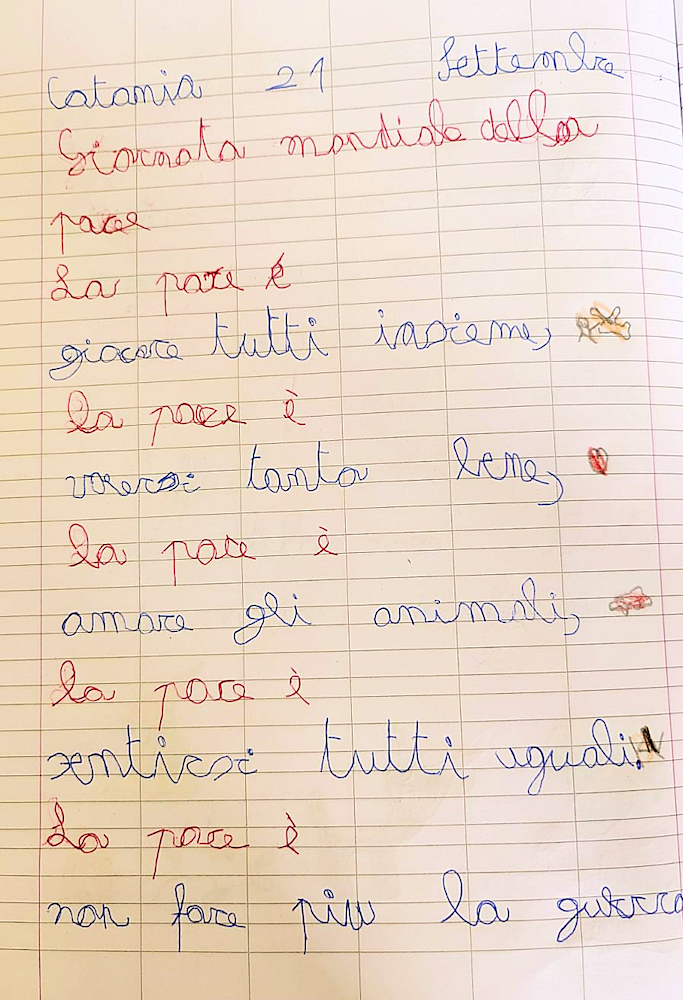 Catania 21 Settembre
Giornata mondiale della
pace
La pace è
giocare tutti insieme,
la pace è
volersi tanto bene,
la pace è
amare gli animali,
la pace è
sentirsi tutti uguali.
La pace è
non fare più la guerra